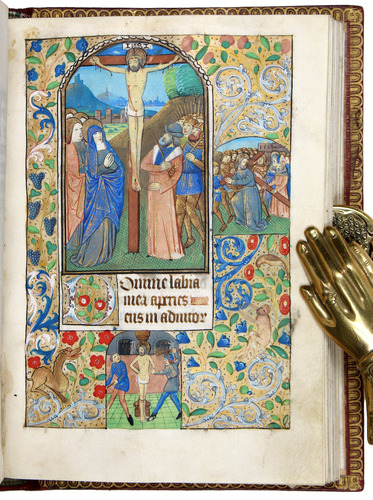 INRI
Domine labia
mea aperies
eus in adiutor